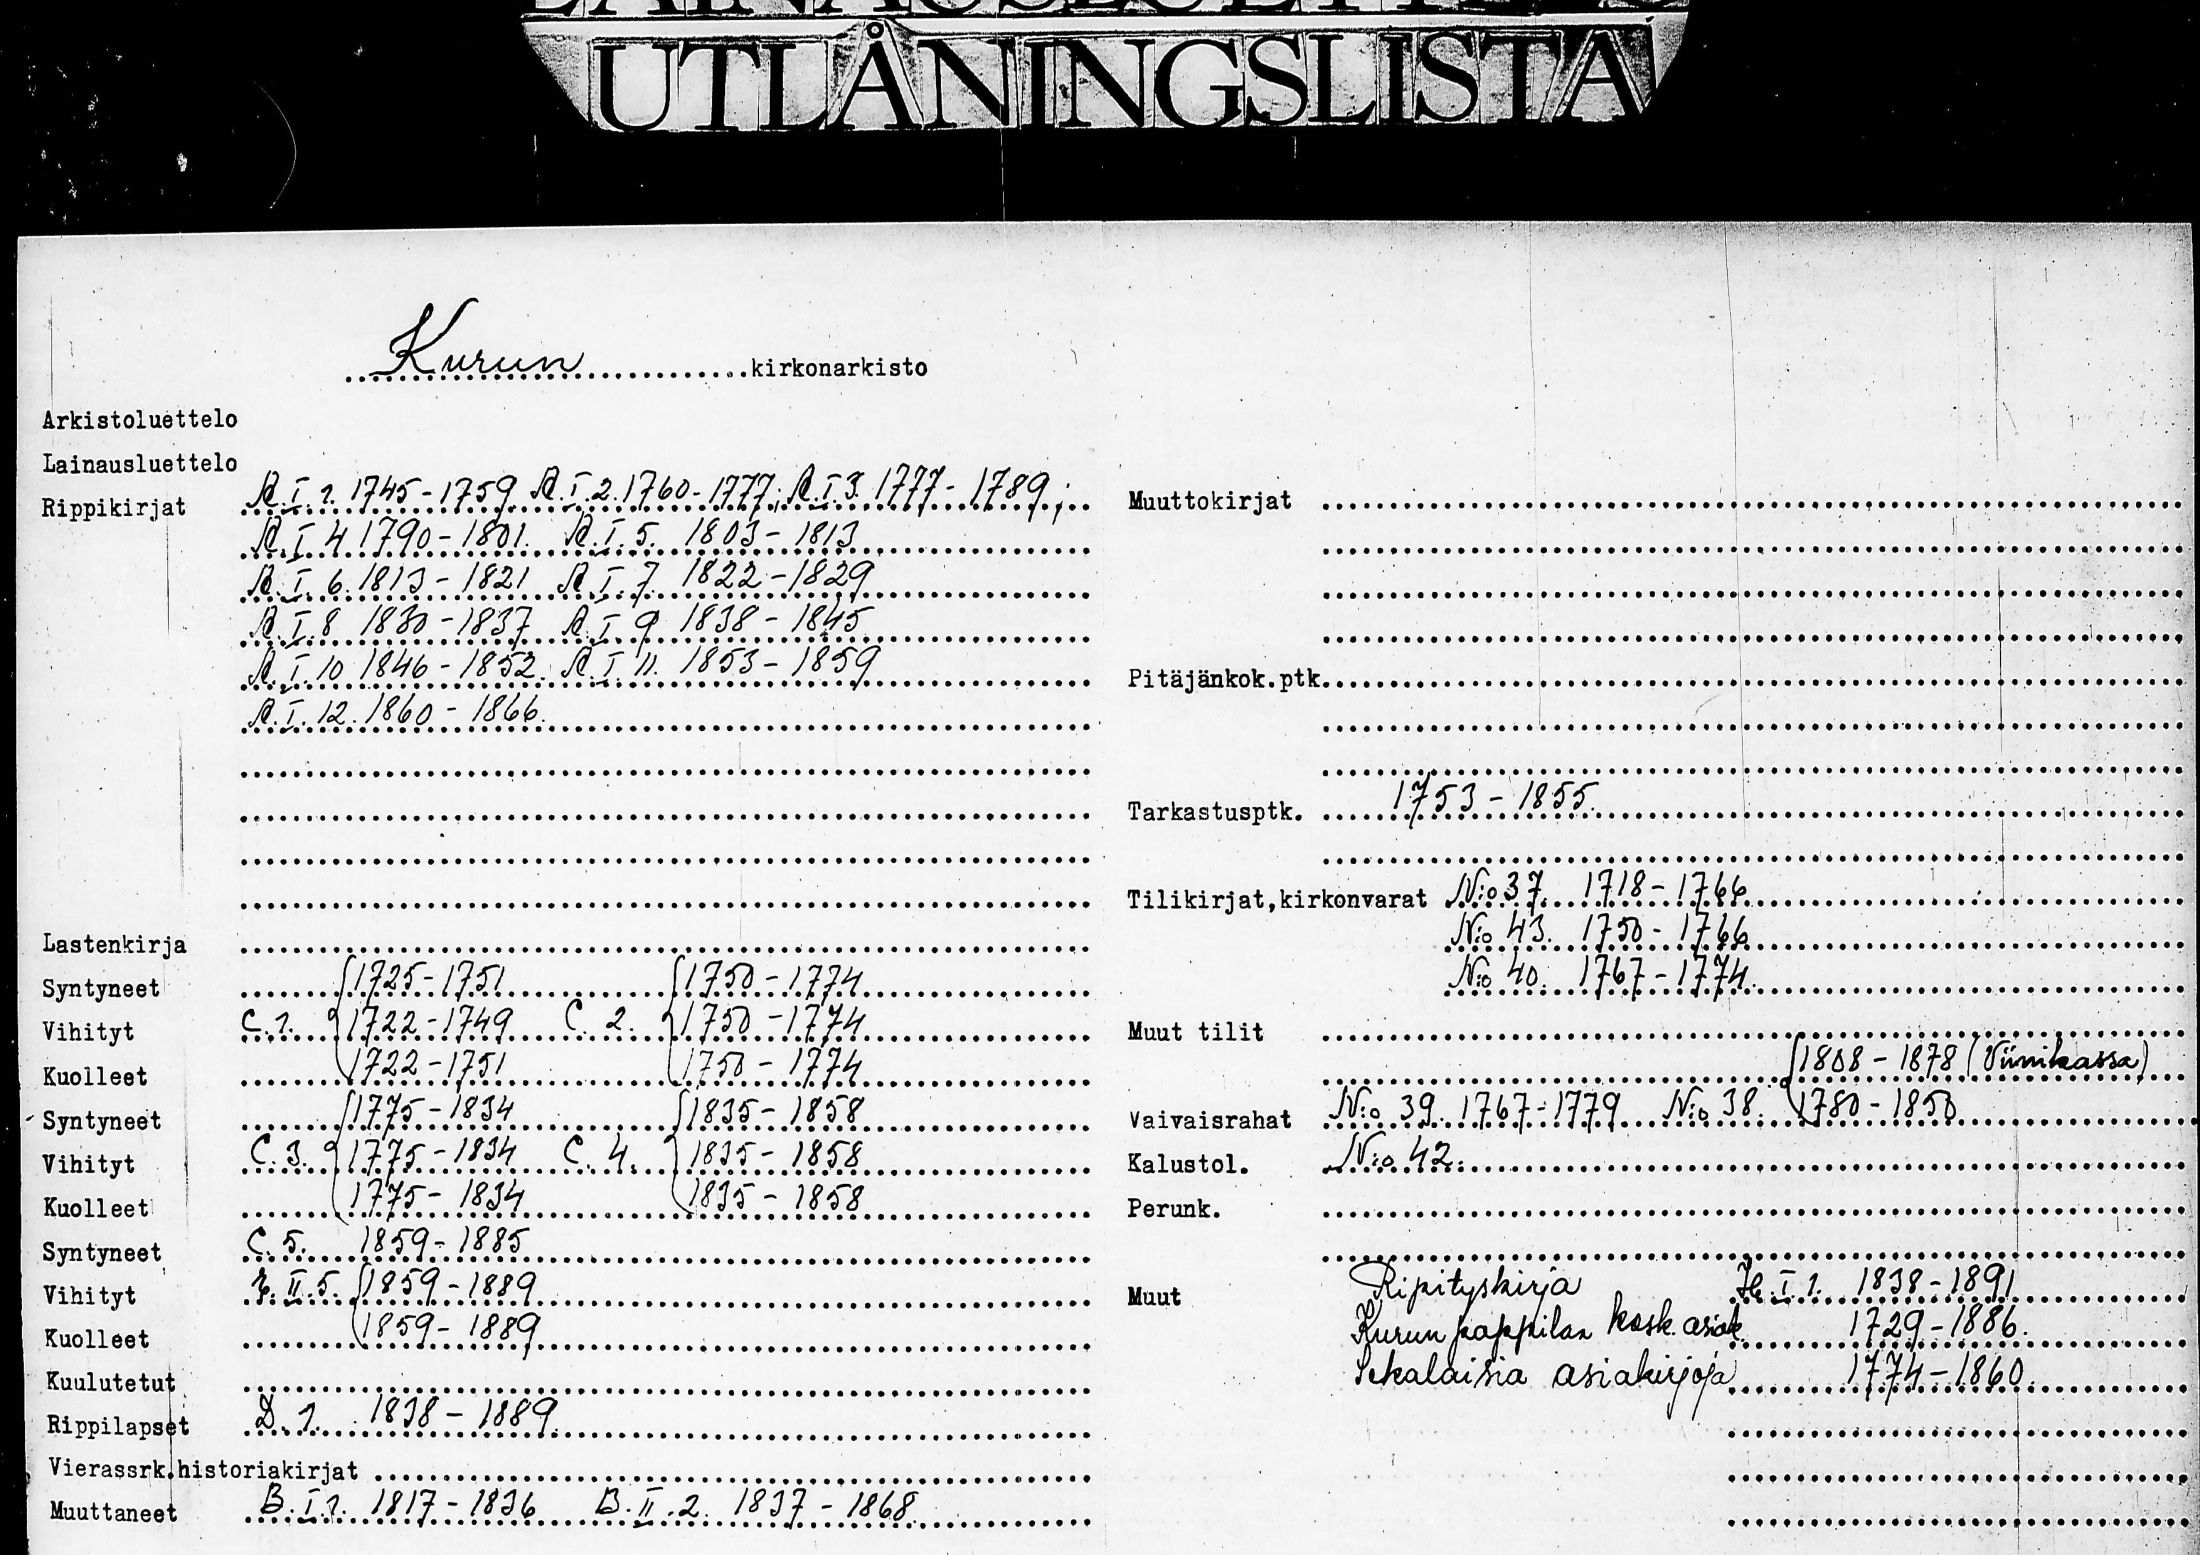 UTLÅNINGSLISTA
Kurun kirkonarkisto
Arkistoluettelo
Lainausluettelo
Rippikirjat A.I.1. 1745-1759 A.I.2. 1760-1777; A.I.3. 1777-1789;
A.I.4 1790-1801. A.I.5. 1803-1813
A.I.6. 1813-1821 A.I.7. 1822-1829
A.I.8 1830-1837 A.I.9 1838-1845
A.I.10 1846-1852. A.I.11. 1853-1859
A.I.12. 1860-1866.
Lastenkirja
Syntyneet 1725-1751 1750-1774
Vihityt C.1. 1722-1749 C.2. 1750-1774
Kuolleet 1722-1751 1750-1774
Syntyneet 1775-1834 1835-1858
Vihityt C.3. 1775-1834 C.4. 1835-1858
Kuolleet 1775-1834 1835-1858
Syntyneet C.5. 1859-1885
Vihityt II.5. 1859-1889
Kuolleet 1859-1889
Kuulutetut
Rippilapset D.1. 1838-1889
Vierassrk.historiakirjat
Muuttaneet B.I.1. 1817-1836 B.II.2. 1837-1868.
Muuttokirjat
Pitäjänkok.ptk.
Tarkastusptk. 1753-1855.
Tilikirjat,kirkonvarat N:o 37. 1718-1766
N:o 43. 1750-1766
N:o 40. 1767-1774.
Muut tilit
1808-1878 (Viinikassa)
Vaivaisrahat N:o 39. 1767-1779 N:o 38. 1780-1850
Kalustol. N:o 42.
Perunk.
Muut Ripityskirja I.1. 1838-1891
Kurun pappilan kosk. asiak. 1729-1886.
Sekalaisia asiakirjoja 1774-1860